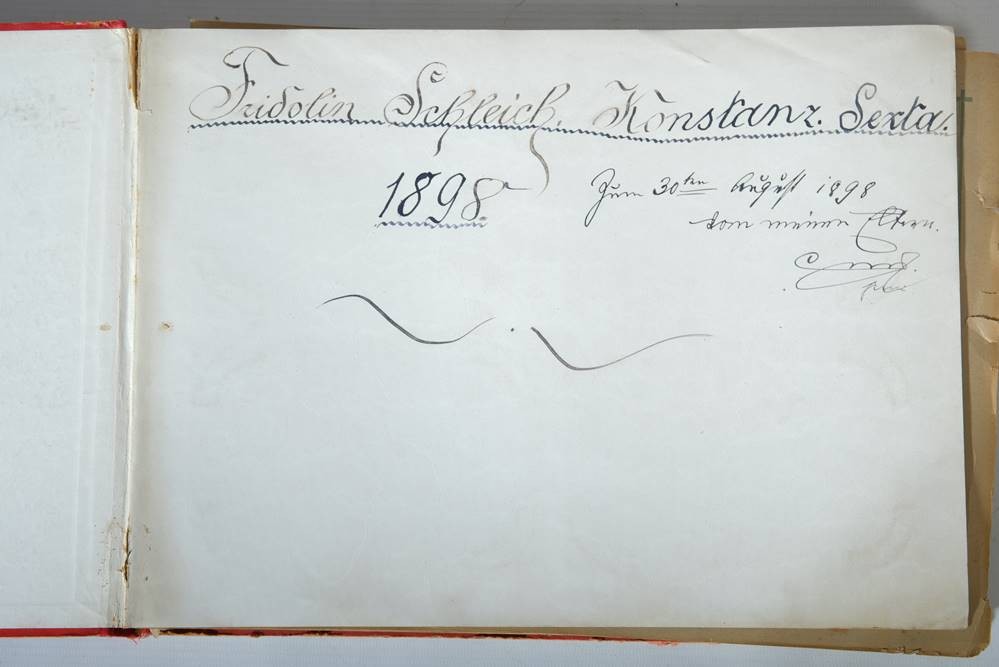 Fridolin Schleich. Konstanz. Sexta.
1898
Zum 30ten August 1898
von meinen Eltern.